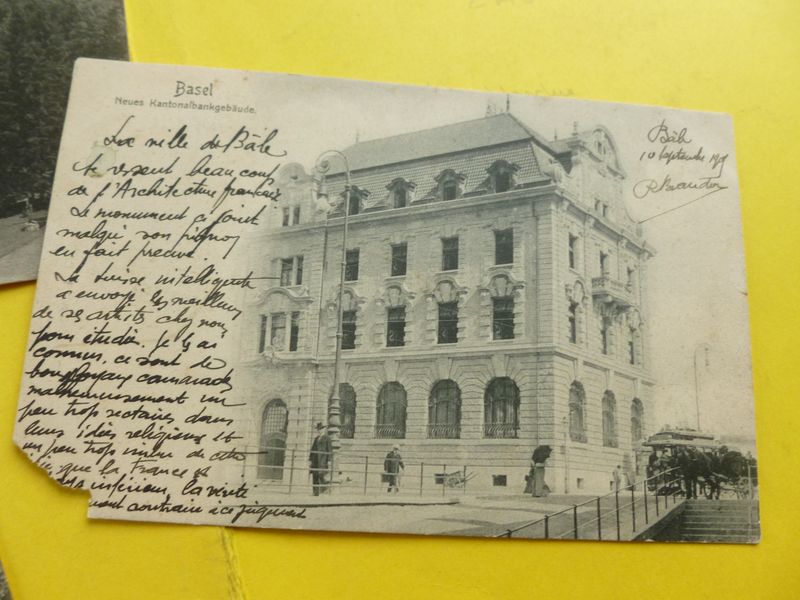 Basel
Neues Kantonalbankgebäude.
La ville de Bâle
se ressent beaucoup
de l'Architecture française
Le monument ci joint
malgré son pignon
en fait preuve.
La Suisse intelligente
a envoyé les meilleurs
de ses artistes chez nous
pour étudier. Je les ai
connus, ce sont de
bons camarades
malheureusement un
peu trop sectaires dans
leurs idées religieuses et
un peu trop
que la France est
inférieur, la vérité
contraire à ce jugement
Bâle
10 Septembre